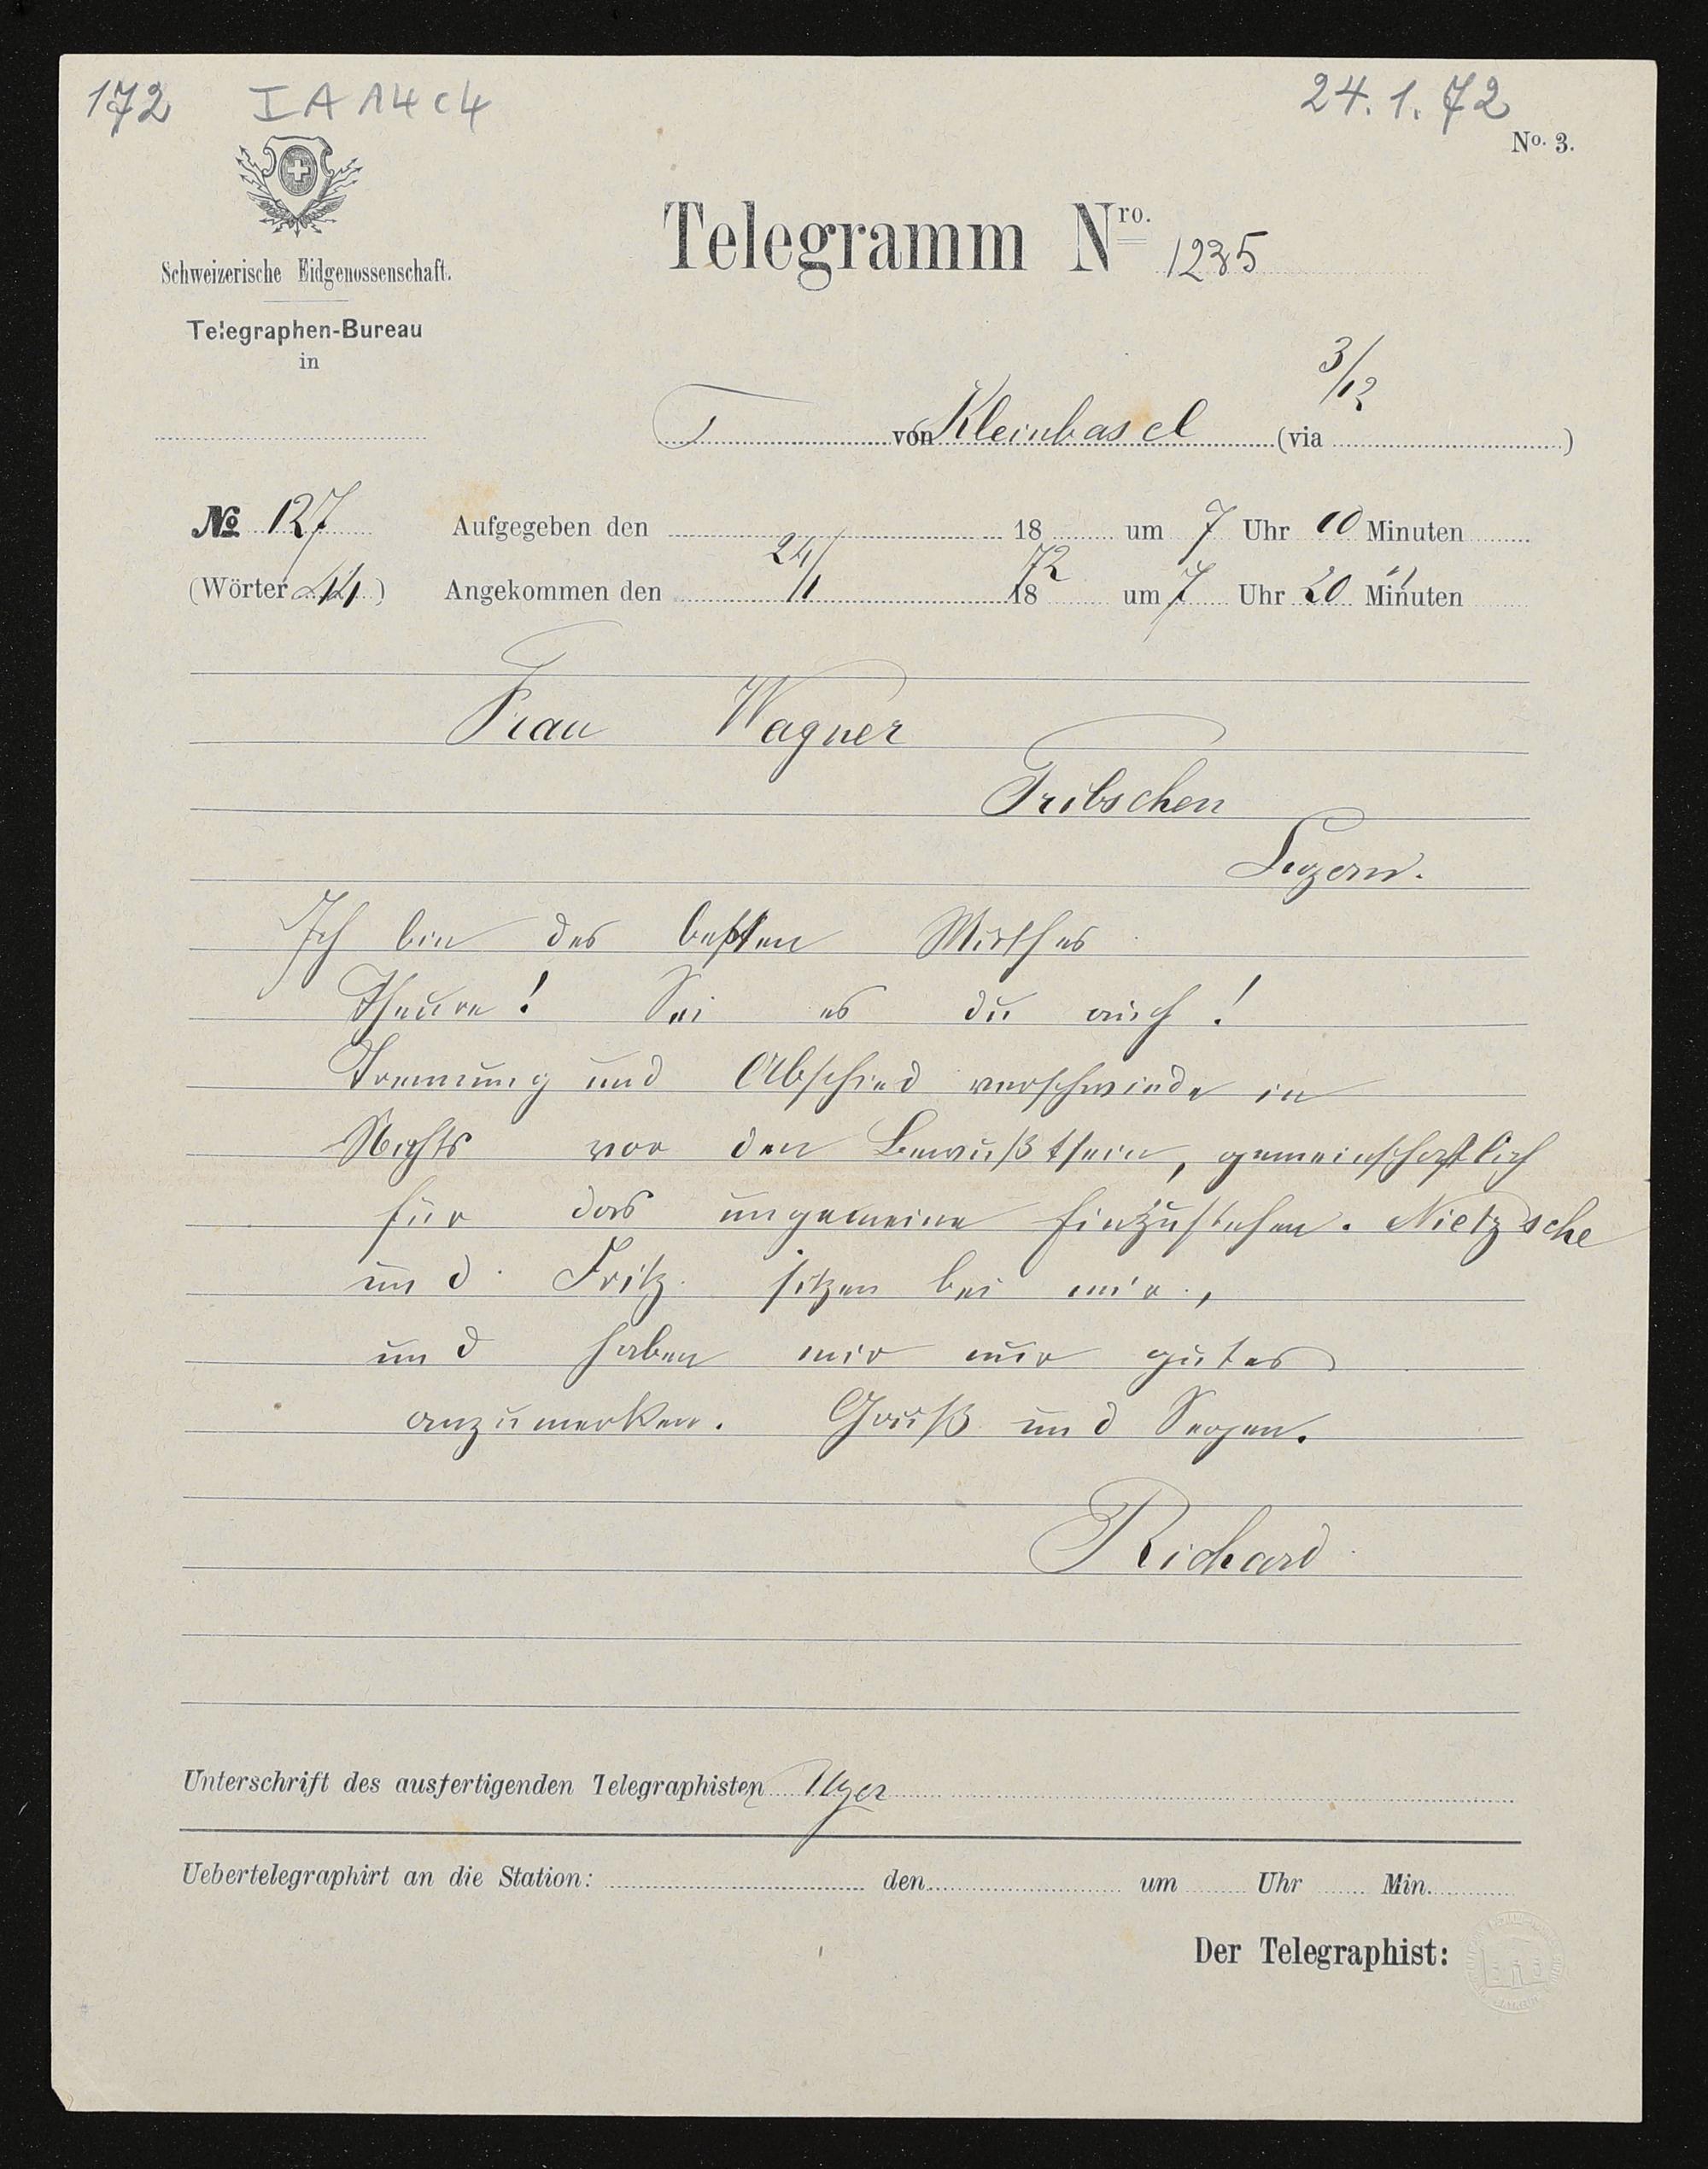 172 I A 14 c 4
24.1.72
No. 3.
Schweizerische Eidgenossenschaft.
Telegraphen-Bureau
in
Telegramm Nro. 1235
3/12
T von Kleinbasel (via )
No 127 Aufgegeben den 18 um 7 Uhr 10 Minuten
(Wörter 44) Angekommen den 24/1 1872 um 7 Uhr 20 Minuten
Frau Wagner
Tribschen
Luzern.
Ich bin des besten Muthes
Theure! Sei es du auch!
Trennung und Abschied verschwinde in
Nichts vor den Bewußtsein, gemeinschaftlich
für das ungemeine Einzustehen. Nietzsche
und Fritz sitzen bei mir,
und haben mir nur gutes
anzumerken. Gruß und Segen.
Richard
Unterschrift des ausfertigenden Telegraphisten
Uebertelegraphirt an die Station: den um Uhr Min.
Der Telegraphist: